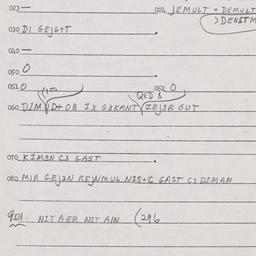 023 — 00½ JEMULT = DEMULT
) DENSTM
030 DI GEJG+T
040 —
050 0
0510 052 0
QED
060 DIM VD+OB IX G3KANT ZEJ3R GUT
070 KIM3N C3 GAST
080 MIR GEJ3N KEJNMUL NIS+C GAST C3 DIMAN
901 NIT A ER NIT AIN (296